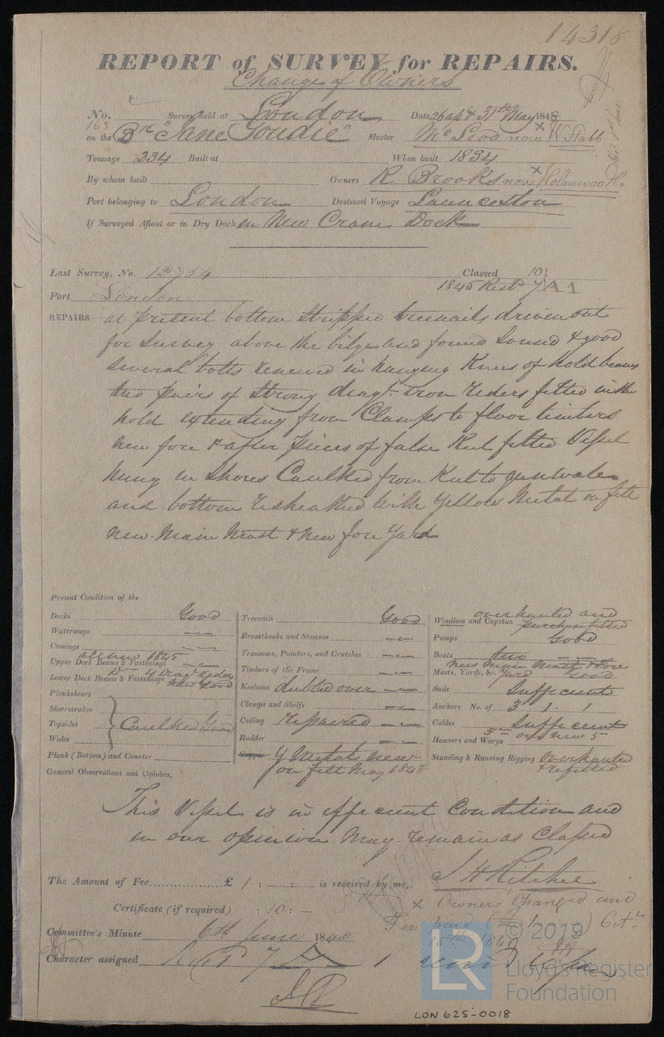 14318
REPORT of SURVEY for REPAIRS.
Change of Owners
No. 163 Survey held at London Date 26 Apl & 31st May 1848
on the Bk "Jane Goudie" Master McLeod now W Stabb
Tonnage 234 Built at When built 1834
By whom built Owners R Brooks now Holmwood
Port belonging to London Destined Voyage Launceston
If Surveyed Afloat or in Dry Dock in New Crane Dock
Last Survey, No. 12754 Classed 10
Port London 1845 Restd 7 A 1
REPAIRS at present bottom stripped treenails driven out
for survey above the bilge and found sound & good
several bolts renewed in hanging Knees of hold beams
two pairs of strong diagl Iron riders fitted in the
hold extending from Clamps to floor timbers
new fore & after pieces of false Keel fitted Vessel
hung in shores Caulked from Keel to gunwales
and bottom resheathed with Yellow Metal on felt
new Main Mast & new fore Yard
Present Condition of the
Decks Good
Waterways
Comings
all new 1845
Upper Deck Beams & Fastenings
Lower Deck Beams & Fastenings Do 4 Diagl Riders
Plansheers
Sheerstrakes
Topsides Caulked Good
Wales
Plank (Bottom) and Counter
Treenails Good
Breasthooks and Stemson
Transoms, Pointers, and Crutches
Timbers of the Frame
Keelsons doubled over
Clamps and Shelfs
Ceiling repaired
Rudder
Copper Y Metal new
on felt May 1848
Windlass and Capstan overhauled and
purchase fitted
Pumps Good
Boats two
new Main Mast & Fore
Masts, Yards, &c. Yard Good
Sails Sufficient
Anchors No. of 3 . 1 . 1
Cables Sufficient
Hawsers and Warps
Standing & Running Rigging overhauled
& refitted
General Observations and Opinion,
This Vessel is in efficient Condition and
in our opinion may remain as Classed
The Amount of Fee £ 1 : : is received by me,
J H Ritchie
Certificate (if required) : 10 : -
x Owners changed and
Fee paid
Committee's Minute 6th June 1848
Character assigned
© 2019
LR
Lloyd's Register
Foundation
LON 625-0018